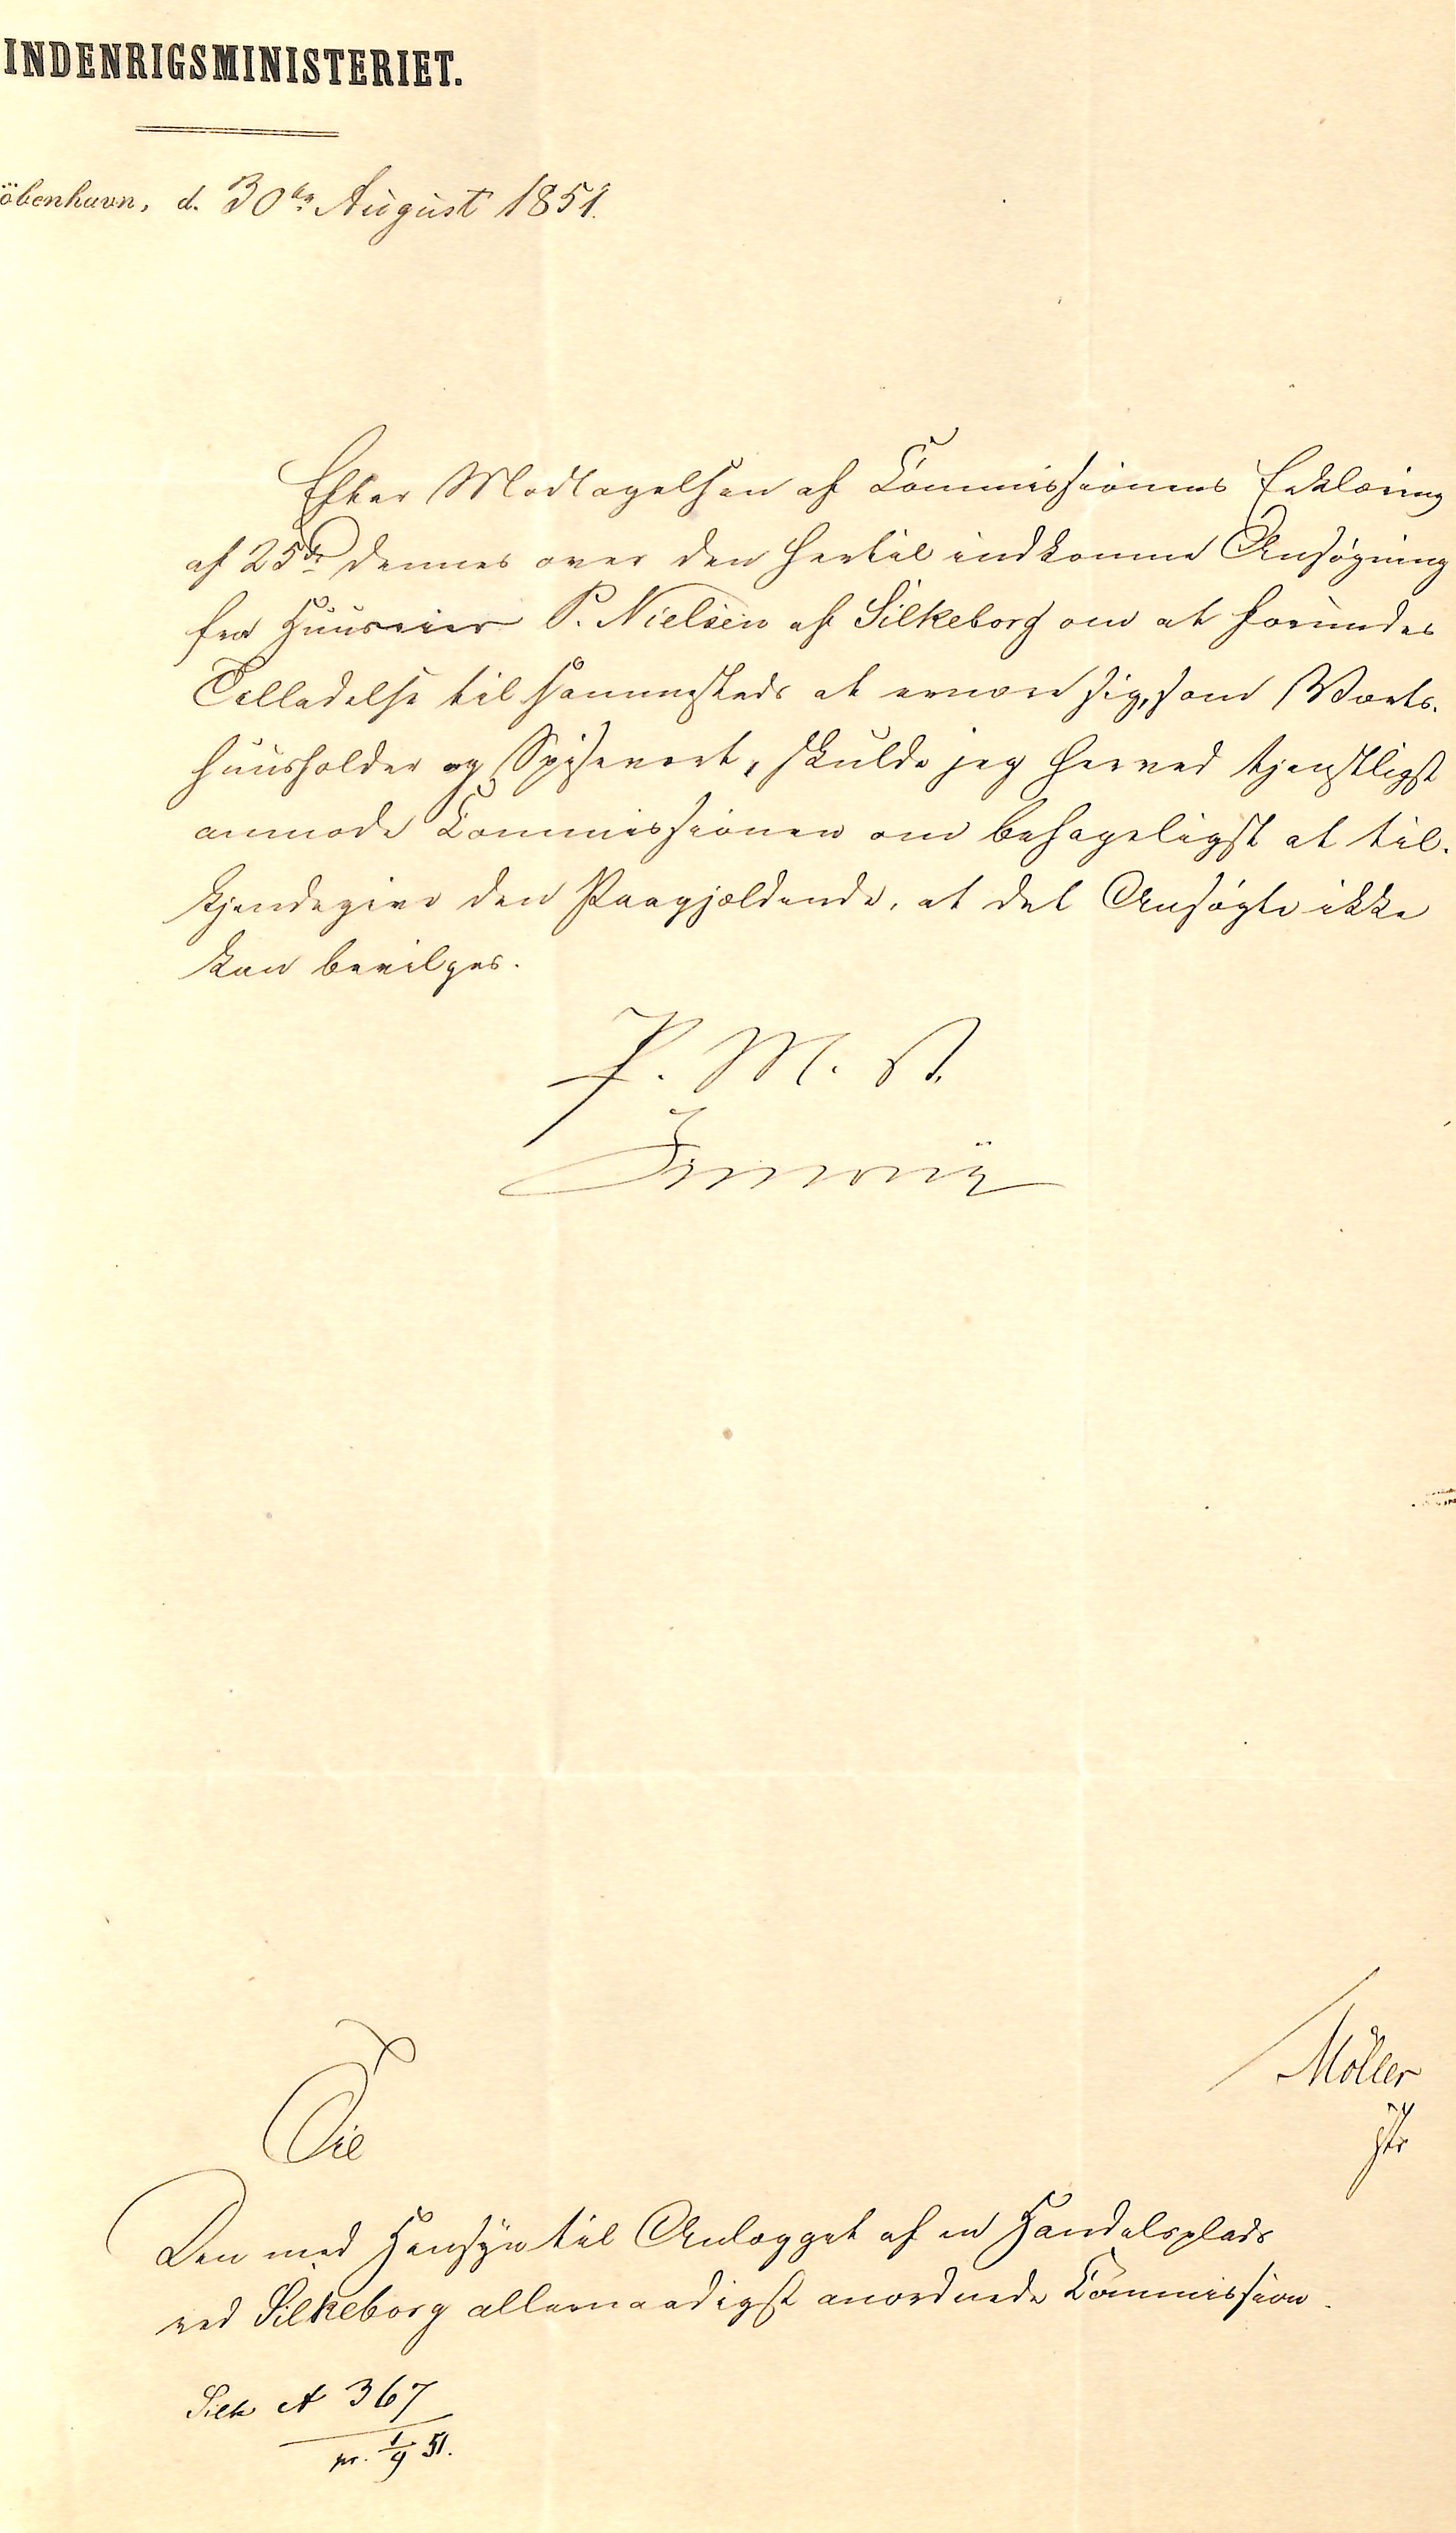 INDENRIGSMINISTERIET.
öbenhavn, d. 30te August 1851.
Efter Modtagelsen af Commissionens Erklæring
af 25de dennes over den hertil indkomne Ansøgning
fra Huuseier P. Nielsen af Silkeborg om at forundes
Tilladelse til sammesteds at ernære sig, som Værts-
huusholder og Spisevært, skulde jeg herved tjenstligst
anmode Commissionen om behageligst at til-
kjendegive den Paagjældende, at det Ansøgte ikke
kan bevilges.
P. M. V.
Simony
Möller
Til
Den med Hensyn til Anlægget af en Handelsplads
ved Silkeborg allernaadigst anordnede Commission.
Silk A 367
pr. 1/9 51.